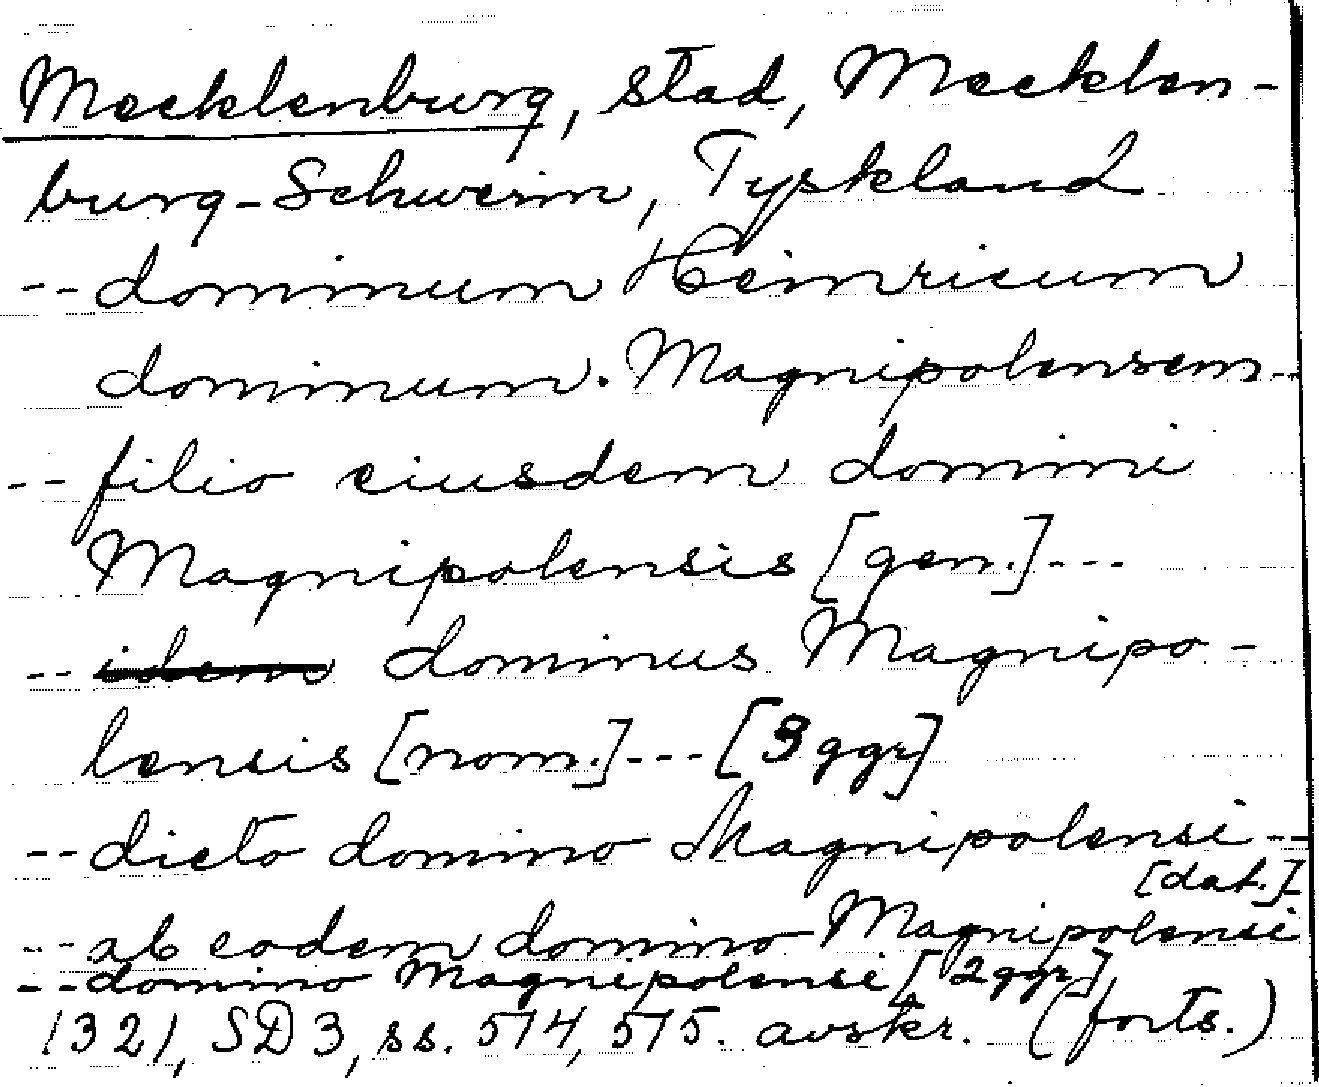 Mecklenburg, stad, Mecklen-
burg-Schwerin, Tyskland
-- dominum Heinricum
dominum. Magnipolensem --
-- filio eiusdem domini
Magnipolensis [gen.] ---
-- idem dominus Magnipo-
lensis [nom.] --- [3 ggr]
-- dicto domino Magnipolensi --
[dat.]
-- ab eodem domino Magnipolensi
-- domino Magnipolensi [2 ggr]
1321, SD 3, ss. 574, 575. avskr. (forts.)